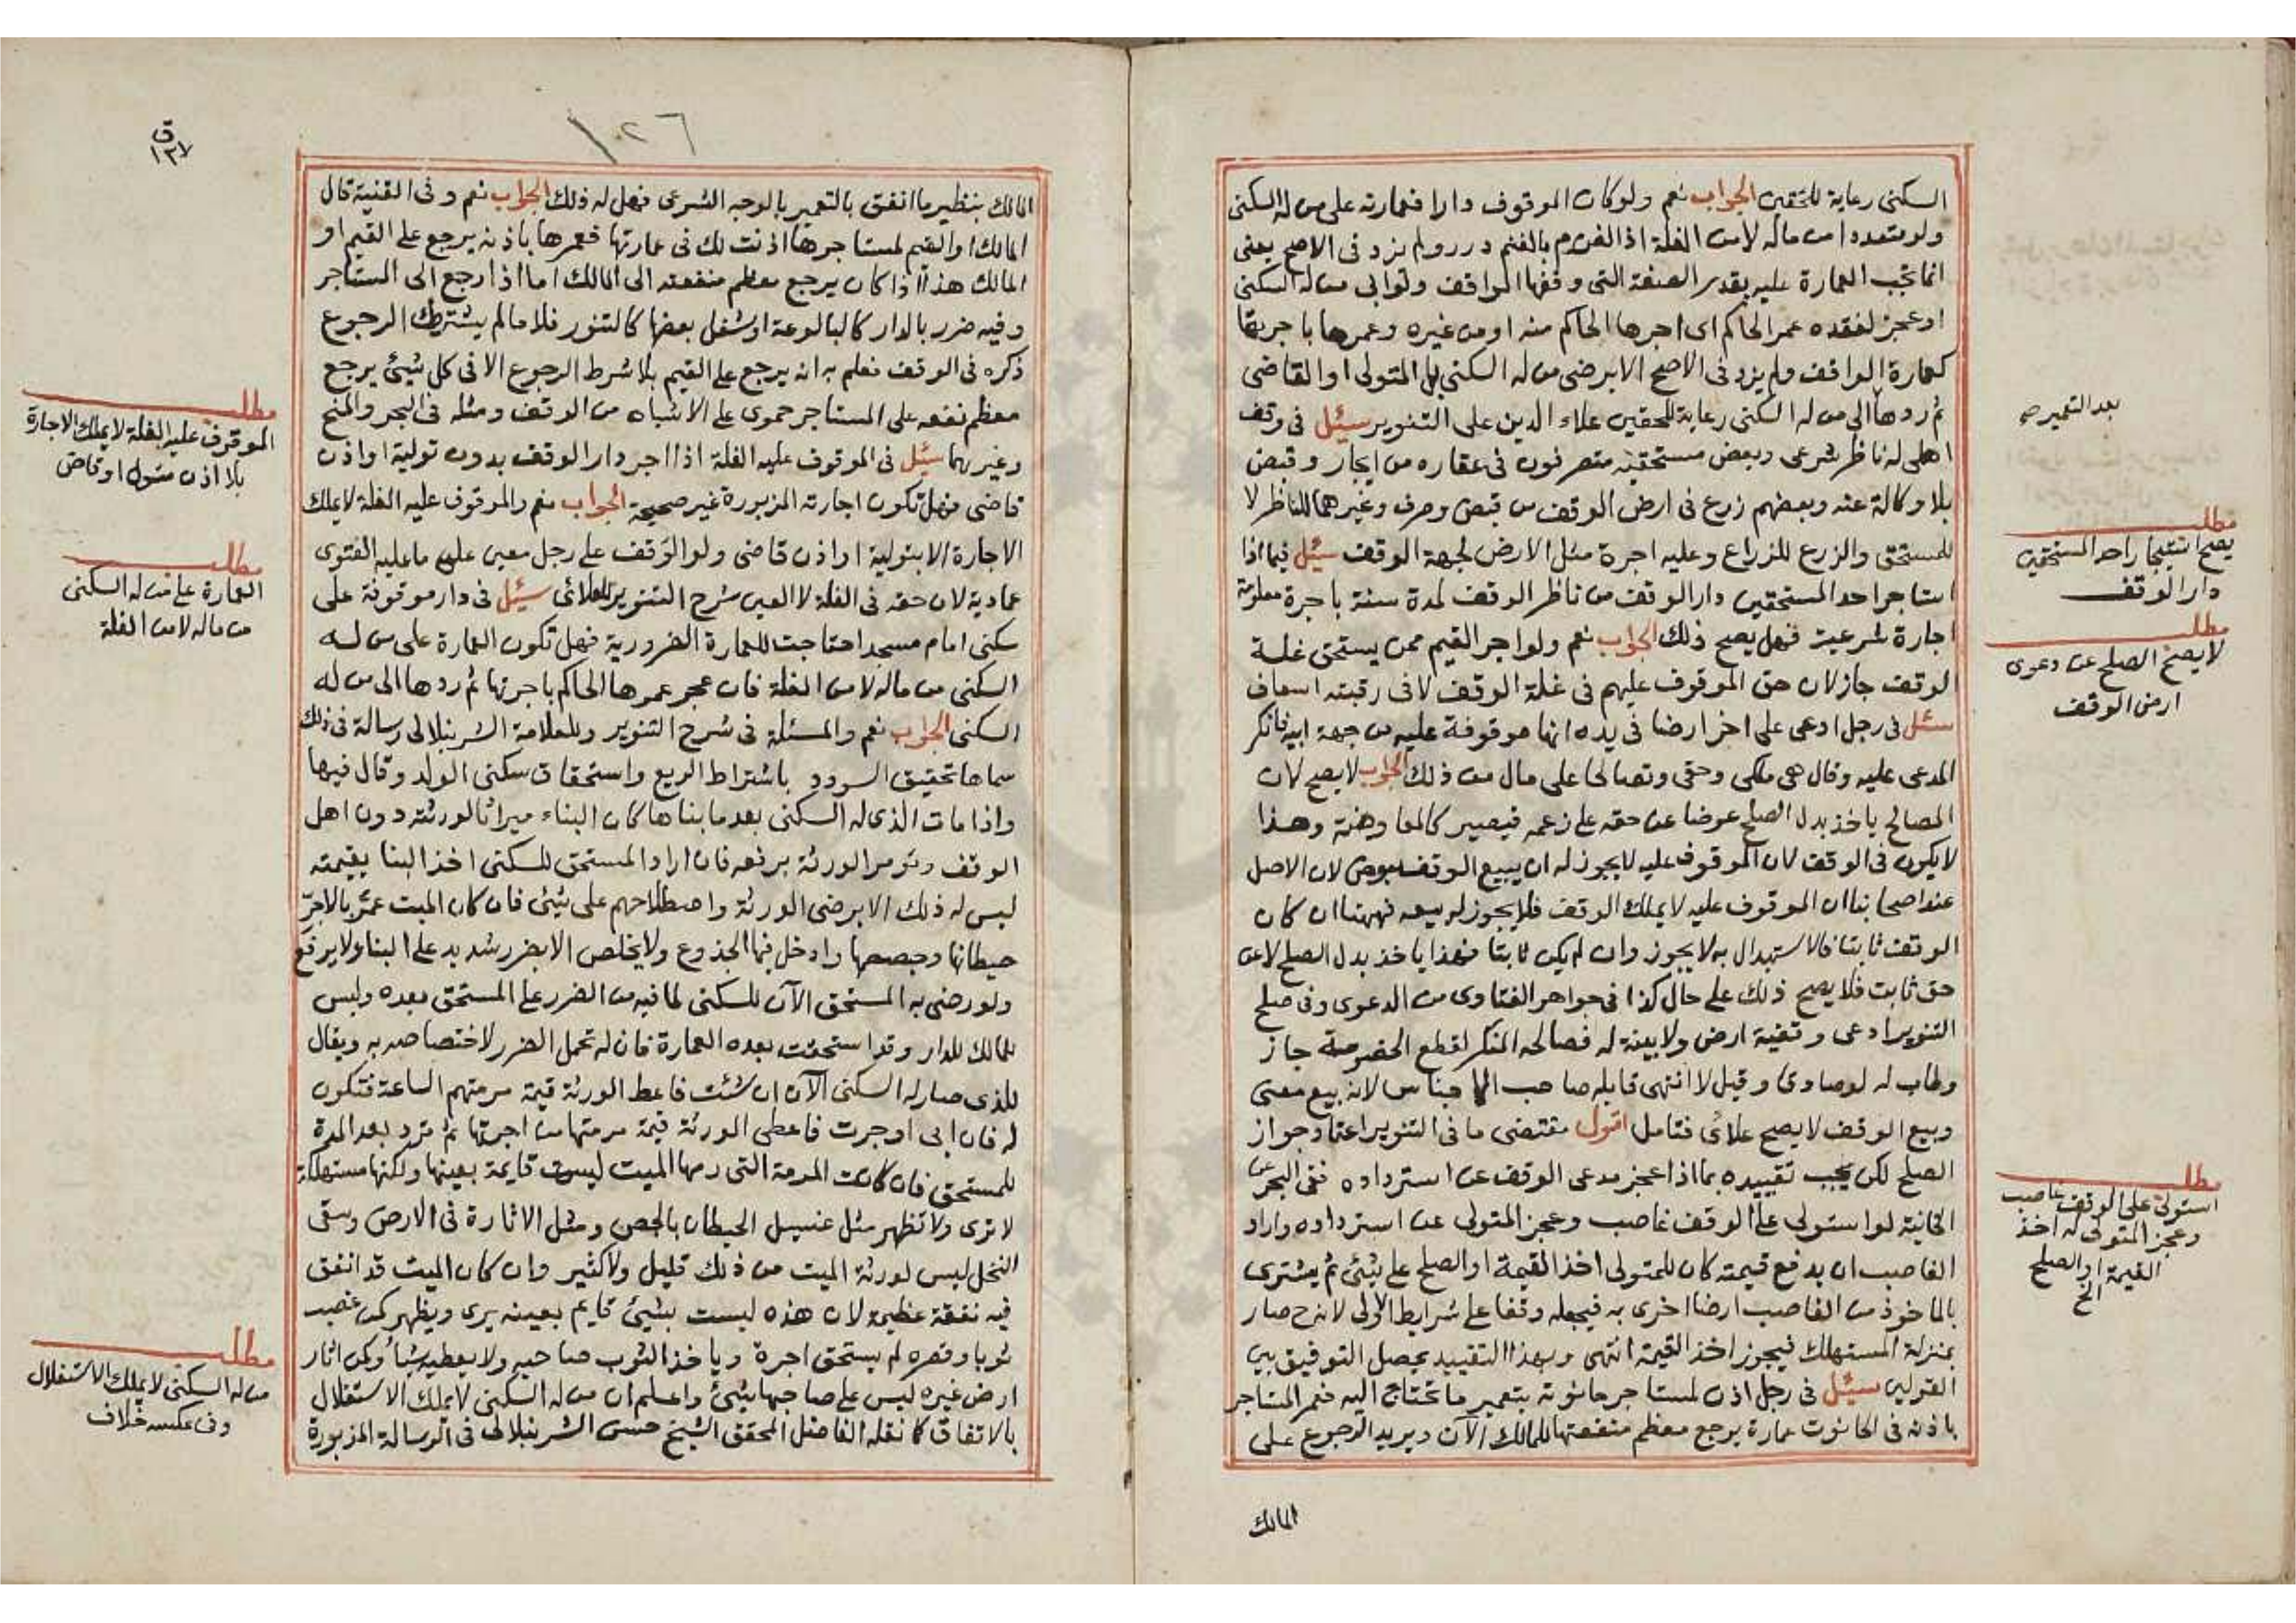 السكنى رعاية للحقين الجواب نعم ولو كان الموقوف دارا فعمارته على من له السكنى
ولو متعددا من ماله لا من الغلة اذ الغرم بالغنم درر ولم يزد فى الاصح يعنى
انما تجب العمارة عليه بقدر الصفة التى وقفها الواقف ولو ابى من له السكنى
او عجز لفقده عمر الحاكم اى اجرها الحاكم منه او من غيره وعمرها باجرتها
كعمارة الواقف ولم يزد فى الاصح الا برضى من له السكنى بل المتولى او القاضى
ثم ردها الى من له السكنى رعاية للحقين علاء الدين على التنوير سئل فى وقف
بعد التعمير صح
اهلى له ناظر شرعى وبعض مستحقيه متصرفون فى عقاره من ايجار وقبض
بلا وكالة عنه وبعضهم زرع فى ارض الوقف من قبض وصرف وغيرهما للناظر لا
للمستحق والزرع للزراع وعليه اجرة مثل الارض لجهة الوقف سئل فيما اذا
مطلب
يصح استيجار احد المستحقين
دار الوقف
استاجر احد المستحقين دار الوقف من ناظر الوقف لمدة سنة باجرة معلومة
اجارة شرعية فهل يصح ذلك الجواب نعم ولو اجر القيم ممن يستحق غلة
مطلب
لا يصح الصلح عن دعوى
ارض الوقف
الوقف جاز لان حق الموقوف عليهم فى غلة الوقف لا فى رقبته اسعاف
سئل فى رجل ادعى على اخر ارضا فى يده انها موقوفة عليه من جهة ابيه فانكر
المدعى عليه وقال هى ملكى وحقى وتصالحا على مال من ذلك الجواب لا يصح لان
المصالح ياخذ بدل الصلح عوضا عن حقه على زعمه فيصير كالمعاوضة وهذا
لا يكون فى الوقف لان الموقوف عليه لا يجوز له ان يبيع الوقف بعوض لان الاصل
عند اصحابنا ان الموقوف عليه لا يملك الوقف فلا يجوز له بيعه فههنا ان كان
الوقف ثابتا فالاستبدال به لا يجوز وان لم يكن ثابتا فهذا ياخذ بدل الصلح لا عن
حق ثابت فلا يصح ذلك على حال كذا فى جواهر الفتاوى من الدعوى وفى صلح
التنوير ادعى وقفية ارض ولا بينة له فصالحه المنكر لقطع الخصومة جاز
وطاب له لو صادقا وقيل لا انتهى قايله صاحب الاجناس لانه بيع معنى
وبيع الوقف لا يصح علائى فتامل اقول مقتضى ما فى التنوير اعتماد جواز
الصلح لكن يجب تقييده بما اذا عجز مدعى الوقف عن استرداده ففى البحر عن
مطلب
استولى على الوقف غاصب
وعجز المتولى له اخذ
القيمة او الصلح
الخ
الخانية لو استولى على الوقف غاصب وعجز المتولى عن استرداده واراد
الغاصب ان يدفع قيمته كان للمتولى اخذ القيمة او الصلح على شئ ثم يشترى
بالماخوذ من الغاصب ارضا اخرى به فيجعله وقفا على شرايط الاولى لانه ح صار
بمنزلة المستهلك فيجوز اخذ القيمة انتهى وبهذا التقييد يحصل التوفيق بين
القولين سئل فى رجل اذن لمستاجر حانوته بتعمير ما تحتاج اليه فعمر المستاجر
باذنه فى الحانوت عمارة يرجع معظم منفعتها للمالك الآن ويريد الرجوع على
المالك
١٢٦
ق
١٣٧
المالك بنظير ما انفق بالتعمير بالوجه الشرعى فهل له ذلك الجواب نعم وفى القنية قال
المالك او القيم لمستاجرها اذنت لك فى عمارتها فعمرها باذنه يرجع على القيم او
المالك هذا اذا كان يرجع معظم منفعته الى المالك اما اذا رجع الى المستاجر
وفيه ضرر بالدار كالبالوعة او شغل بعضها كالتنور فلا مالم يشترط الرجوع
ذكره فى الوقف فعلم به انه يرجع على القيم بلا شرط الرجوع الا فى كل شئ يرجع
معظم نفعه على المستاجر حموى على الاشباه من الوقف ومثله فى البحر والمنح
مطلب
الموقوف عليه الغلة لا يملك الاجارة
بلا اذن متول او قاض
وغيرهما سئل فى الموقوف عليه الغلة اذا اجر دار الوقف بدون تولية او اذن
قاضى فهل تكون اجارته المزبورة غير صحيحة الجواب نعم والموقوف عليه الغلة لا يملك
الاجارة الا بتولية او اذن قاضى ولو الوقف على رجل معين على ما عليه الفتوى
مطلب
العمارة على من له السكنى
من ماله لا من الغلة
عمادية لان حقه فى الغلة لا العين شرح التنوير للعلائى سئل فى دار موقوفة على
سكنى امام مسجد احتاجت للعمارة الضرورية فهل تكون العمارة على من له
السكنى من ماله لا من الغلة فان عجز عمرها الحاكم باجرتها ثم ردها الى من له
السكنى الجواب نعم والمسئلة فى شرح التنوير وللعلامة الشرنبلالى رسالة فى ذلك
سماها تحقيق السودد باشتراط الريع واستحقاق سكنى الولد وقال فيها
واذا مات الذى له السكنى بعد ما بناها كان البناء ميراثا لورثته دون اهل
الوقف وتومر الورثة برفعه فان اراد المستحق للسكنى اخذ البنا بقيمته
ليس له ذلك الا برضى الورثة واصطلاحهم على شئ فان كان الميت عمّر بالاجرّ
حيطانها وجصصها وادخل فيها الجذوع ولا يخلص الا بضرر شديد على البناء ولا يرفع
ولو رضى به المستحق الآن للسكنى لما فيه من الضرر على المستحق بعده وليس
للمالك للدار وقد استحقت بعده العمارة فان له تحمل الضرر لاختصاصه به ويقال
للذى صار له السكنى الآن ان شئت فاعط الورثة قيمة مرمتهم الساعة فتكون
له فان ابى اوجرت فاعطى الورثة قيمة مرمتها من اجرتها ثم ترد بعد المدة
للمستحق فان كانت المرمة التى رمها الميت ليست قايمة بعينها ولكنها مستهلكة
لا ترى ولا تظهر مثل غسيل الحيطان بالجص ومثل الاثارة فى الارض وسقى
النخل ليس لورثة الميت من ذلك قليل ولا كثير وان كان الميت قد انفق
فيه نفقة عظيمة لان هذه ليست بشئ قايم بعينه يرى ويظهر كمن غصب
مطلب
من له السكنى لا يملك الاستغلال
وفى عكسه خلاف
ثوبا وقصره لم يستحق اجرة وياخذ الثوب صاحبه ولا يعطيه شيأ وكمن اثار
ارض غيره ليس على صاحبها شئ واعلم ان من له السكنى لا يملك الاستغلال
بالاتفاق كما نقله الفاضل المحقق الشيخ حسن الشرنبلالى فى الرسالة المزبورة